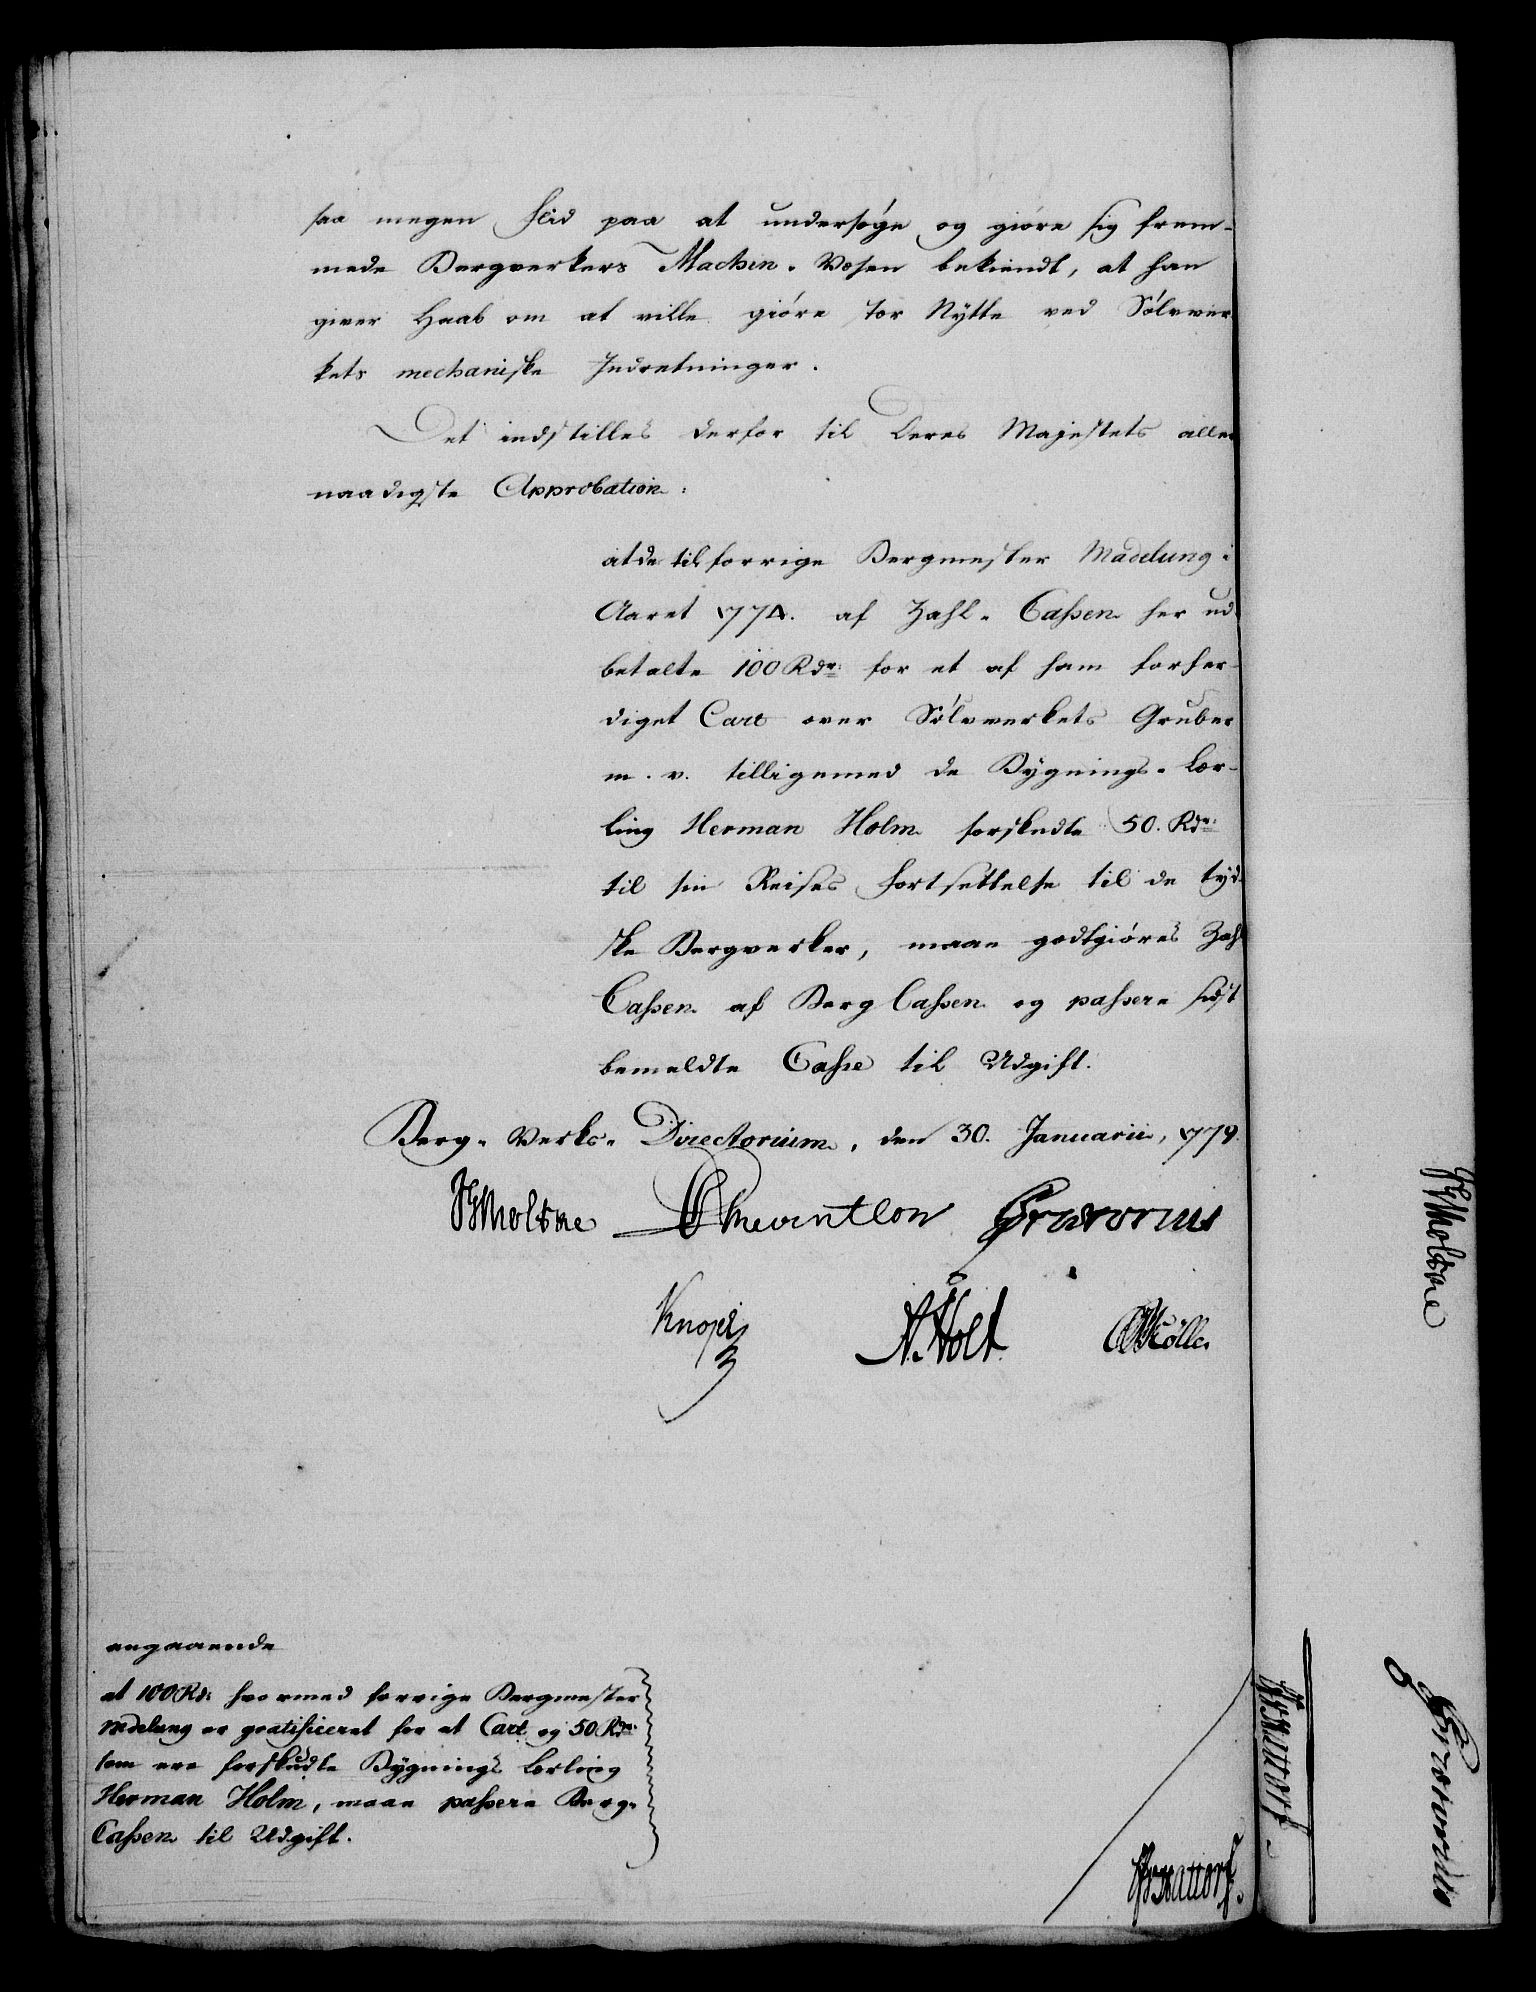 saa megen Flid paa at undersøge og giøre sig frem-
mede Bergverkers Machin-Væsen bekiendt, at han
giver Haab om at ville giøre stor Nytte ved Sølvver
kets mechaniske Indretninger.
Det indstilles derfor til Deres Majestets aller
naadigste Approbation:
at de til forrige Bergmester Madelung i
Aaret 1774. af Zahl-Cassen her ud-
betalte 100 Rdr: for et af ham forfer-
diget Cart over Sølvverkets Gruber
m. v. tilligemed de Bygnings-Lær-
ling Herman Holm forskudte 50. Rdr:
til sin Reises Fortsettelse til de tyd-
ske Bergverker, maae godtgiøres Zahl
Cassen af Berg Cassen og passere sidst
bemeldte Casse til Udgift.
Berg-Verks-Directorium, den 30. Januarii, 1779.
Moltke Reventlow Prætorius
Knoph A. Holt Möller
angaaende
at 100 Rdr hvormed forrige Bergmester
Madelung er gratificeret for et Cart og 50 Rdr:
som ere forskudte Bygnings Lærling
Herman Holm, maae passere Berg-
Cassen til Udgift.
Moltke
Prætorius